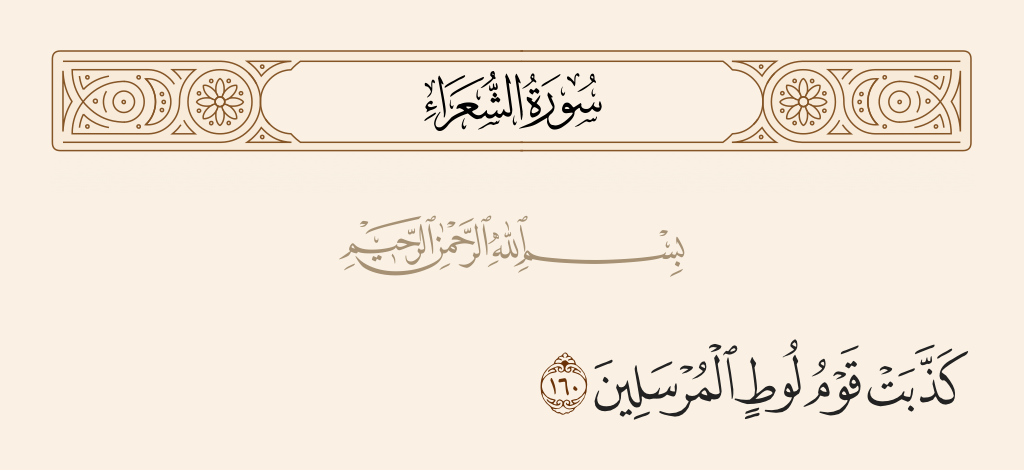 سُورَةُ الشُّعَرَاءِ
بِسْمِ ٱللَّهِ ٱلرَّحْمَٰنِ ٱلرَّحِيمِ
كَذَّبَتْ قَوْمُ لُوطٍ ٱلْمُرْسَلِينَ ١٦٠